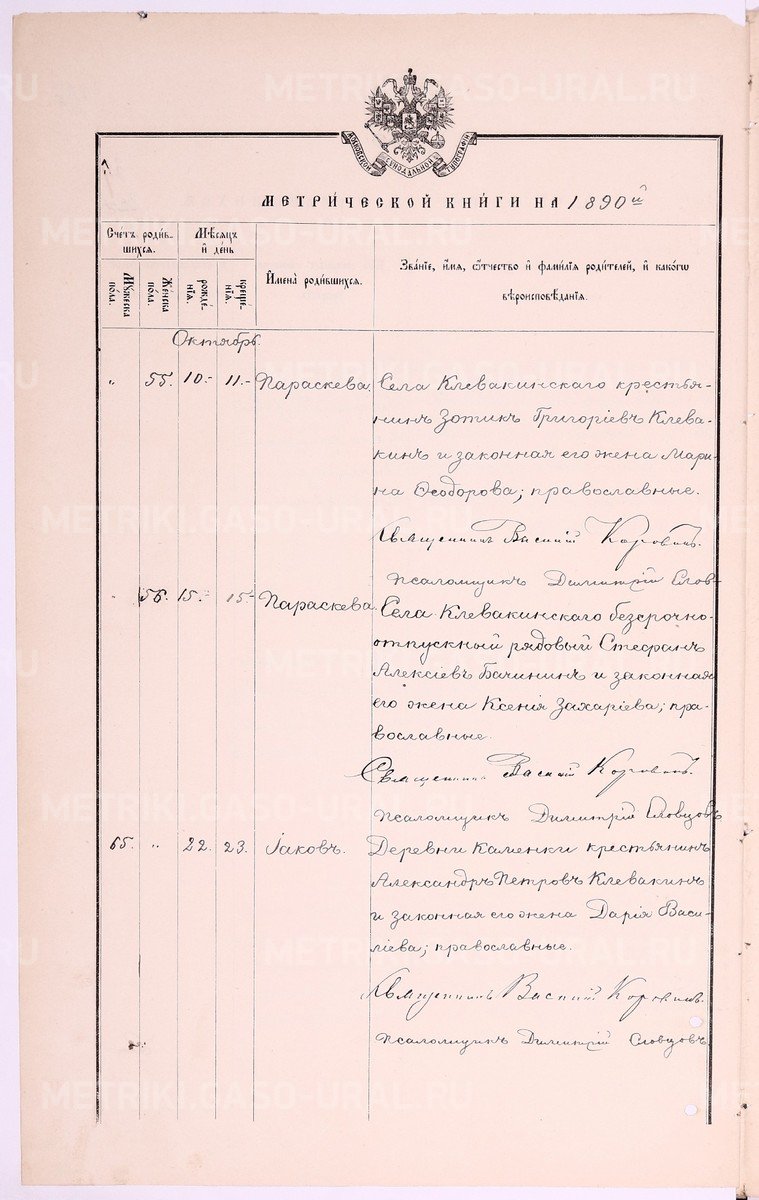 МОСКОВСКОЙ СѴНОДАЛЬНОЙ ТИПОГРАФІИ
МЕТРИ́ЧЕСКОЙ КНИ́ГИ НА 1890й
Сче́тъ роди́в-
шихся.
Мѣ́сяцъ
и҆ де́нь
И҆мена̀ роди́вшихся.
Зва́нїе, и҆́мя, ѻ҆́тчество и҆ фами́лїа роди́телей, и҆ како́гѡ
вѣроисповѣ́данїа.
Мꙋ́жеска
по́ла.
Же́нска
по́ла.
рожде́-
нїѧ.
креще́-
нїѧ.
Октябрь.
„ 55. 10.- 11.- Параскева. Села Клевакинскаго крестья-
нинъ Зотикъ Григоріевъ Клева-
кинъ и законная его жена Мари-
на Ѳеодорова; православные.
Священникъ Василій Коровинъ.
Псаломщикъ Димитрій Слов-
„ 56. 15.- 15.- Параскева. Села Клевакинскаго безсрочно-
отпускный рядовый Стефанъ
Алексіевъ Бачининъ и законная
его жена Ксенія Захаріева; пра-
вославные.
Священникъ Василій Коровинъ.
Псаломщикъ Димитрій Словцовъ
65. „ 22. 23. Іаковъ. Деревни Каменки крестьянинъ
Александръ Петровъ Клевакинъ
и законная его жена Дарія Васи-
ліева; православные.
Священникъ Василій Коровинъ.
Псаломщикъ Димитрій Словцовъ
METRIKI.GASO-URAL.RU